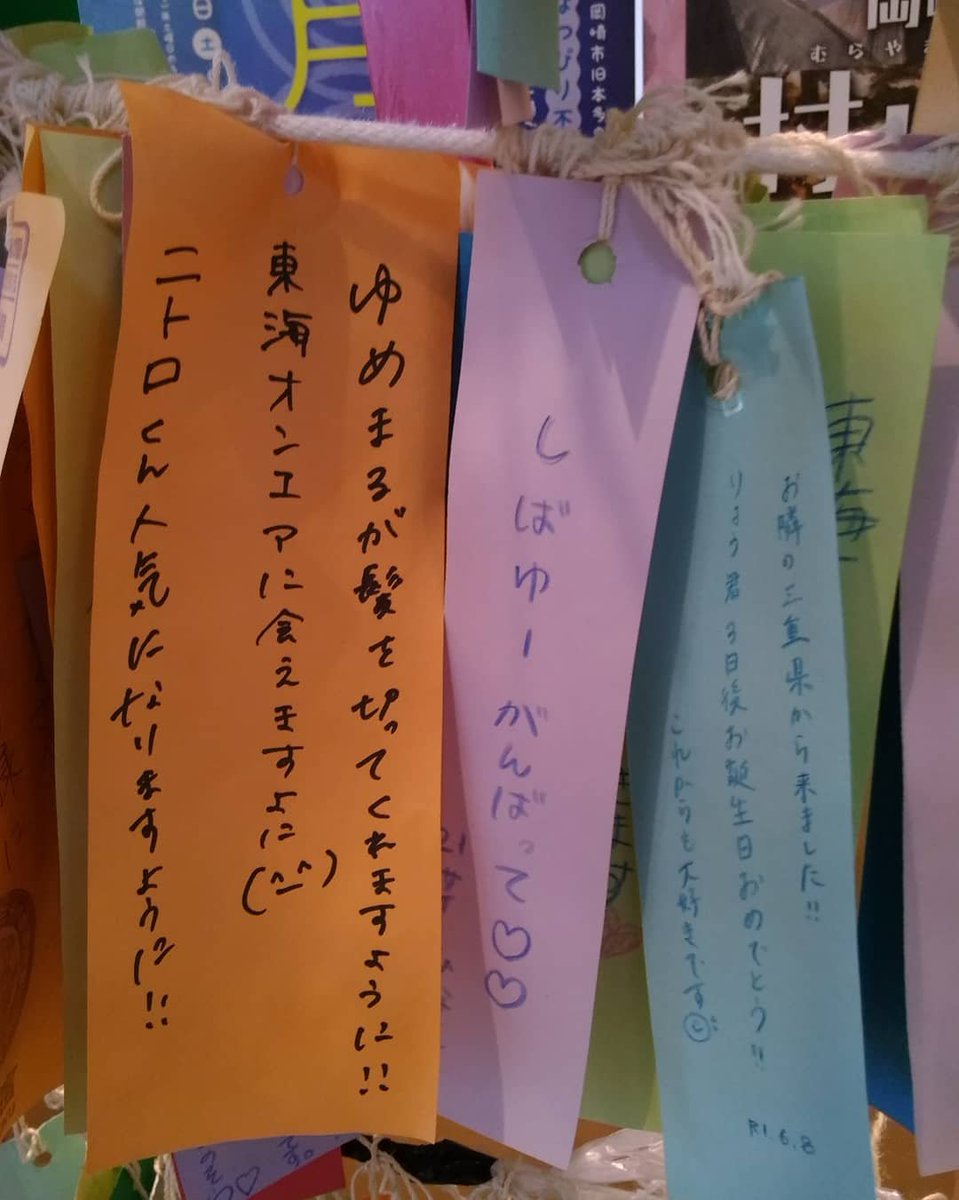 日
土
月
岡崎市旧本多
むらやま
ゆめまるが髪を切ってくれますように!!
東海オンエアに会えますよに(^_^)
ニトロくん人気になりますように!!
しばゆー がんばって♡♡
お隣の三重県から来ました!!
りょう君 3日後お誕生日おめでとう!!
これからも大好きです
R1.6.8
東海